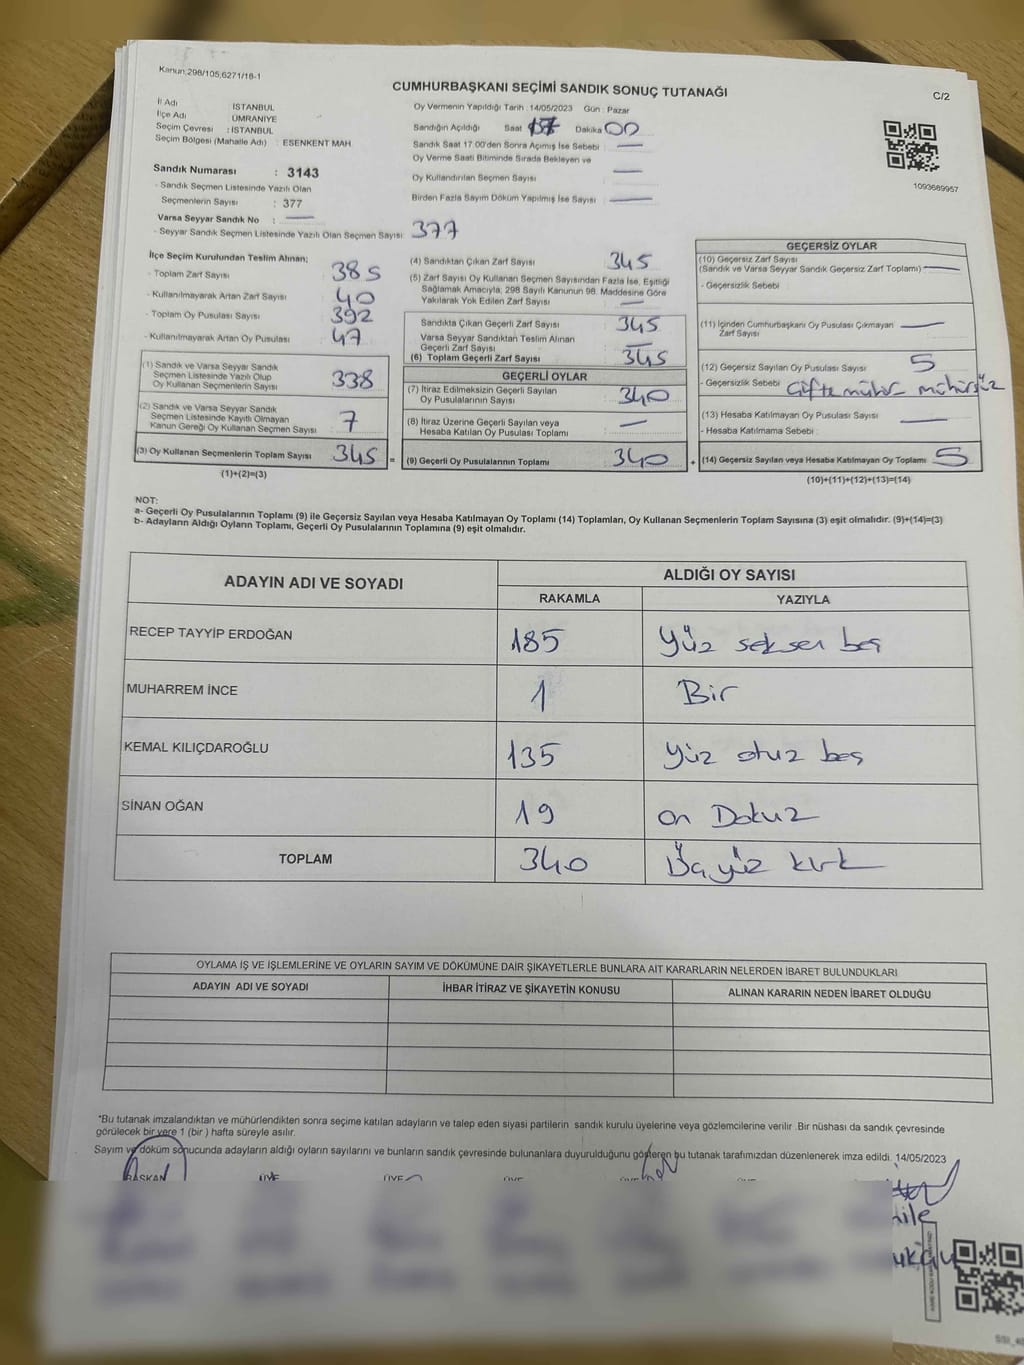 Kanun;298/105;6271/18-1
CUMHURBAŞKANI SEÇİMİ SANDIK SONUÇ TUTANAĞI
C/2
İl Adı İSTANBUL
İlçe Adı ÜMRANİYE
Seçim Çevresi : İSTANBUL
Seçim Bölgesi (Mahalle Adı) : ESENKENT MAH.
Oy Vermenin Yapıldığı Tarih : 14/05/2023 Gün : Pazar
Sandığın Açıldığı Saat 17 Dakika 00
Sandık Saat 17.00'den Sonra Açımış İse Sebebi : —
Oy Verme Saati Bitiminde Sırada Bekleyen ve
Oy Kullandırılan Seçmen Sayısı : —
Birden Fazla Sayım Döküm Yapılmış İse Sayısı : —
1093689957
Sandık Numarası : 3143
- Sandık Seçmen Listesinde Yazılı Olan
Seçmenlerin Sayısı : 377
Varsa Seyyar Sandık No : —
- Seyyar Sandık Seçmen Listesinde Yazılı Olan Seçmen Sayısı: 377
İlçe Seçim Kurulundan Teslim Alınan;
- Toplam Zarf Sayısı : 385
- Kullanılmayarak Artan Zarf Sayısı : 40
- Toplam Oy Pusulası Sayısı : 392
- Kullanılmayarak Artan Oy Pusulası : 47
(1) Sandık ve Varsa Seyyar Sandık
Seçmen Listesinde Yazılı Olup
Oy Kullanan Seçmenlerin Sayısı : 338
(2) Sandık ve Varsa Seyyar Sandık
Seçmen Listesinde Kayıtlı Olmayan
Kanun Gereği Oy Kullanan Seçmen Sayısı : 7
(3) Oy Kullanan Seçmenlerin Toplam Sayısı : 345 =
(1)+(2)=(3)
(4) Sandıktan Çıkan Zarf Sayısı : 345
(5) Zarf Sayısı Oy Kullanan Seçmen Sayısından Fazla İse, Eşitliği
Sağlamak Amacıyla; 298 Sayılı Kanunun 98. Maddesine Göre
Yakılarak Yok Edilen Zarf Sayısı : —
Sandıkta Çıkan Geçerli Zarf Sayısı : 345
Varsa Seyyar Sandıktan Teslim Alınan
Geçerli Zarf Sayısı : —
(6) Toplam Geçerli Zarf Sayısı : 345
GEÇERLİ OYLAR
(7) İtiraz Edilmeksizin Geçerli Sayılan
Oy Pusulalarının Sayısı : 340
(8) İtiraz Üzerine Geçerli Sayılan veya
Hesaba Katılan Oy Pusulası Toplamı : —
(9) Geçerli Oy Pusulalarının Toplamı : 340 +
GEÇERSİZ OYLAR
(10) Geçersiz Zarf Sayısı
(Sandık ve Varsa Seyyar Sandık Geçersiz Zarf Toplamı) : —
- Geçersizlik Sebebi :
(11) İçinden Cumhurbaşkanı Oy Pusulası Çıkmayan : —
Zarf Sayısı
(12) Geçersiz Sayılan Oy Pusulası Sayısı : 5
- Geçersizlik Sebebi : çifte mühür mühürsüz
(13) Hesaba Katılmayan Oy Pusulası Sayısı : —
- Hesaba Katılmama Sebebi :
(14) Geçersiz Sayılan veya Hesaba Katılmayan Oy Toplamı : 5
(10)+(11)+(12)+(13)=(14)
NOT:
a- Geçerli Oy Pusulalarının Toplamı (9) ile Geçersiz Sayılan veya Hesaba Katılmayan Oy Toplamı (14) Toplamları, Oy Kullanan Seçmenlerin Toplam Sayısına (3) eşit olmalıdır. (9)+(14)=(3)
b- Adayların Aldığı Oyların Toplamı, Geçerli Oy Pusulalarının Toplamına (9) eşit olmalıdır.
ADAYIN ADI VE SOYADI
ALDIĞI OY SAYISI
RAKAMLA YAZIYLA
RECEP TAYYİP ERDOĞAN 185 Yüz seksen beş
MUHARREM İNCE 1 Bir
KEMAL KILIÇDAROĞLU 135 Yüz otuz beş
SİNAN OĞAN 19 on Dokuz
TOPLAM 340 Üçyüz kırk
OYLAMA İŞ VE İŞLEMLERİNE VE OYLARIN SAYIM VE DÖKÜMÜNE DAİR ŞİKAYETLERLE BUNLARA AİT KARARLARIN NELERDEN İBARET BULUNDUKLARI
ADAYIN ADI VE SOYADI İHBAR İTİRAZ VE ŞİKAYETİN KONUSU ALINAN KARARIN NEDEN İBARET OLDUĞU
*Bu tutanak imzalandıktan ve mühürlendikten sonra seçime katılan adayların ve talep eden siyasi partilerin sandık kurulu üyelerine veya gözlemcilerine verilir .Bir nüshası da sandık çevresinde
görülecek bir yere 1 (bir ) hafta süreyle asılır.
Sayım ve döküm sonucunda adayların aldığı oyların sayılarını ve bunların sandık çevresinde bulunanlara duyurulduğunu gösteren bu tutanak tarafımızdan düzenlenerek imza edildi. 14/05/2023
BAŞKAN ÜYE ÜYE ÜYE ÜYE